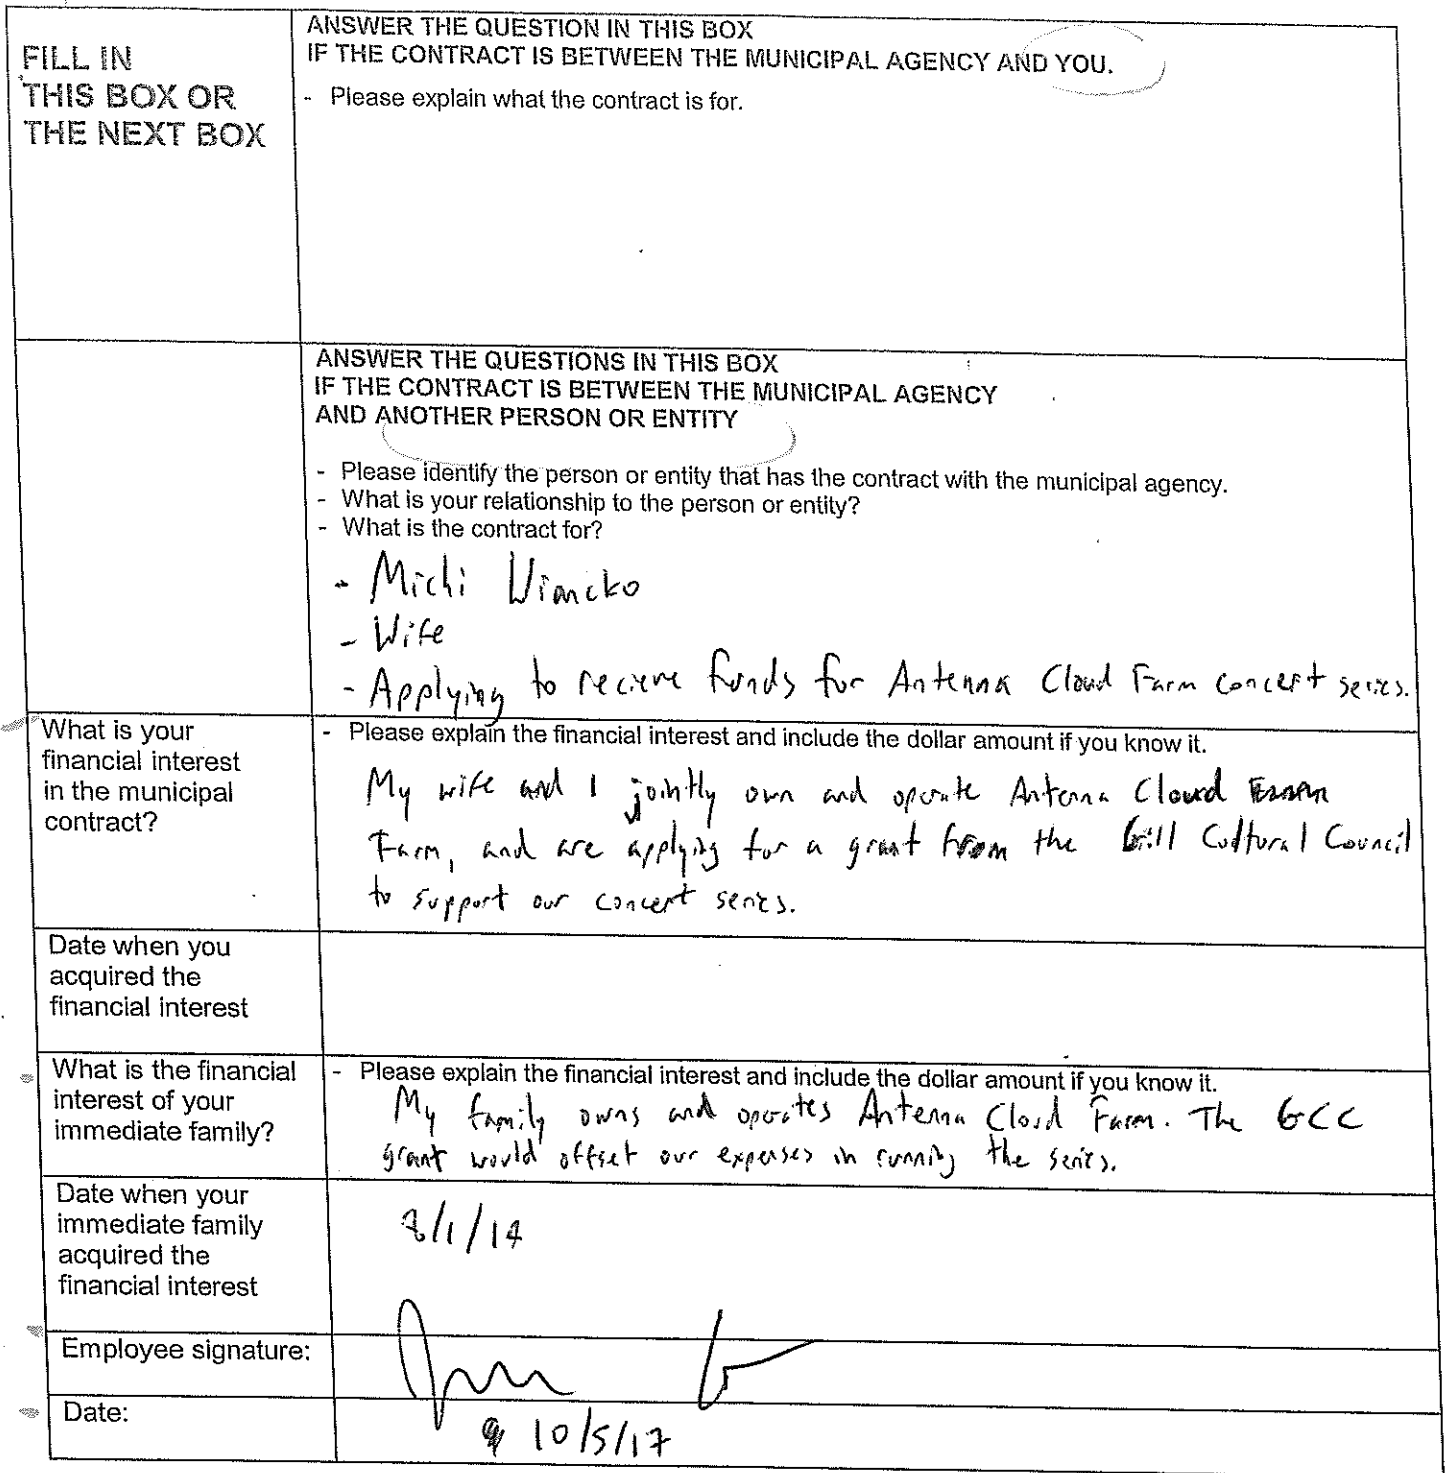 FILL IN
THIS BOX OR
THE NEXT BOX
ANSWER THE QUESTION IN THIS BOX
IF THE CONTRACT IS BETWEEN THE MUNICIPAL AGENCY AND YOU.
- Please explain what the contract is for.
ANSWER THE QUESTIONS IN THIS BOX
IF THE CONTRACT IS BETWEEN THE MUNICIPAL AGENCY
AND ANOTHER PERSON OR ENTITY
- Please identify the person or entity that has the contract with the municipal agency.
- What is your relationship to the person or entity?
- What is the contract for?
- Michi
- Wife
- Applying to recieve funds for Antenna Cloud Farm concert series.
What is your
financial interest
in the municipal
contract?
- Please explain the financial interest and include the dollar amount if you know it.
My wife and I jointly own and operate Antenna Cloud
Farm, and are applying for a grant from the Gill Cultural Council
to support our concert series.
Date when you
acquired the
financial interest
What is the financial
interest of your
immediate family?
- Please explain the financial interest and include the dollar amount if you know it.
My family owns and operates Antenna Cloud Farm. The GCC
grant would offset our expenses in running the series.
Date when your
immediate family
acquired the
financial interest
Employee signature:
Date:
10/5/17